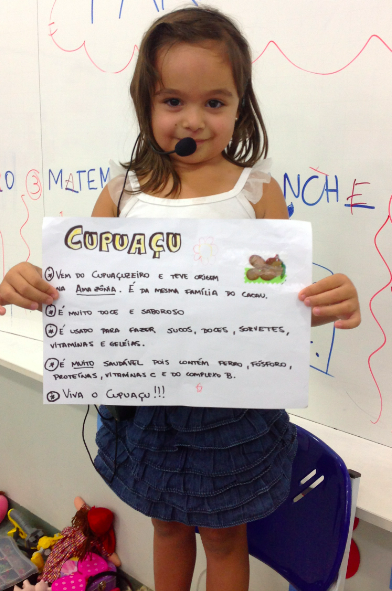 MATEM
NCHE
CUPUAÇU
* VEM DO CUPUAÇUZEIRO E TEVE ORIGEM
NA AMAZÔNIA. É DA MESMA FAMÍLIA DO CACAU.
* É MUITO DOCE E SABOROSO
* É USADO PARA FAZER SUCOS, DOCES, SORVETES,
VITAMINAS E GELÉIAS.
* É MUITO SAUDÁVEL POIS CONTÉM FERRO, FÓSFORO,
PROTEÍNAS, VITAMINAS C E DO COMPLEXO B.
* VIVA O CUPUAÇU!!!